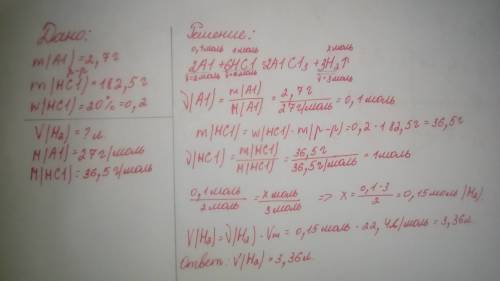 Дано:
m(Al)=2,7г
р-р
m(HCl)=182,5г
w(HCl)=20%=0,2
V(H₂)=?л
M(Al)=27г/моль
M(HCl)=36,5г/моль
Решение:
0,1моль 1моль x моль
2Al+6HCl=2AlCl₃+3H₂↑
ν=2моль ν=6моль ν=3моль
ν(Al)=m(Al)/M(Al)=2,7г/27г/моль=0,1моль
m(HCl)=w(HCl)·m(р-р)=0,2·182,5г=36,5г
ν(HCl)=m(HCl)/M(HCl)=36,5г/36,5г/моль=1моль
0,1моль/2моль=x моль/3моль => x=0,1·3/2=0,15моль(H₂)
V(H₂)=ν(H₂)·Vm=0,15моль·22,4л/моль=3,36л.
Ответ: V(H₂)=3,36л.